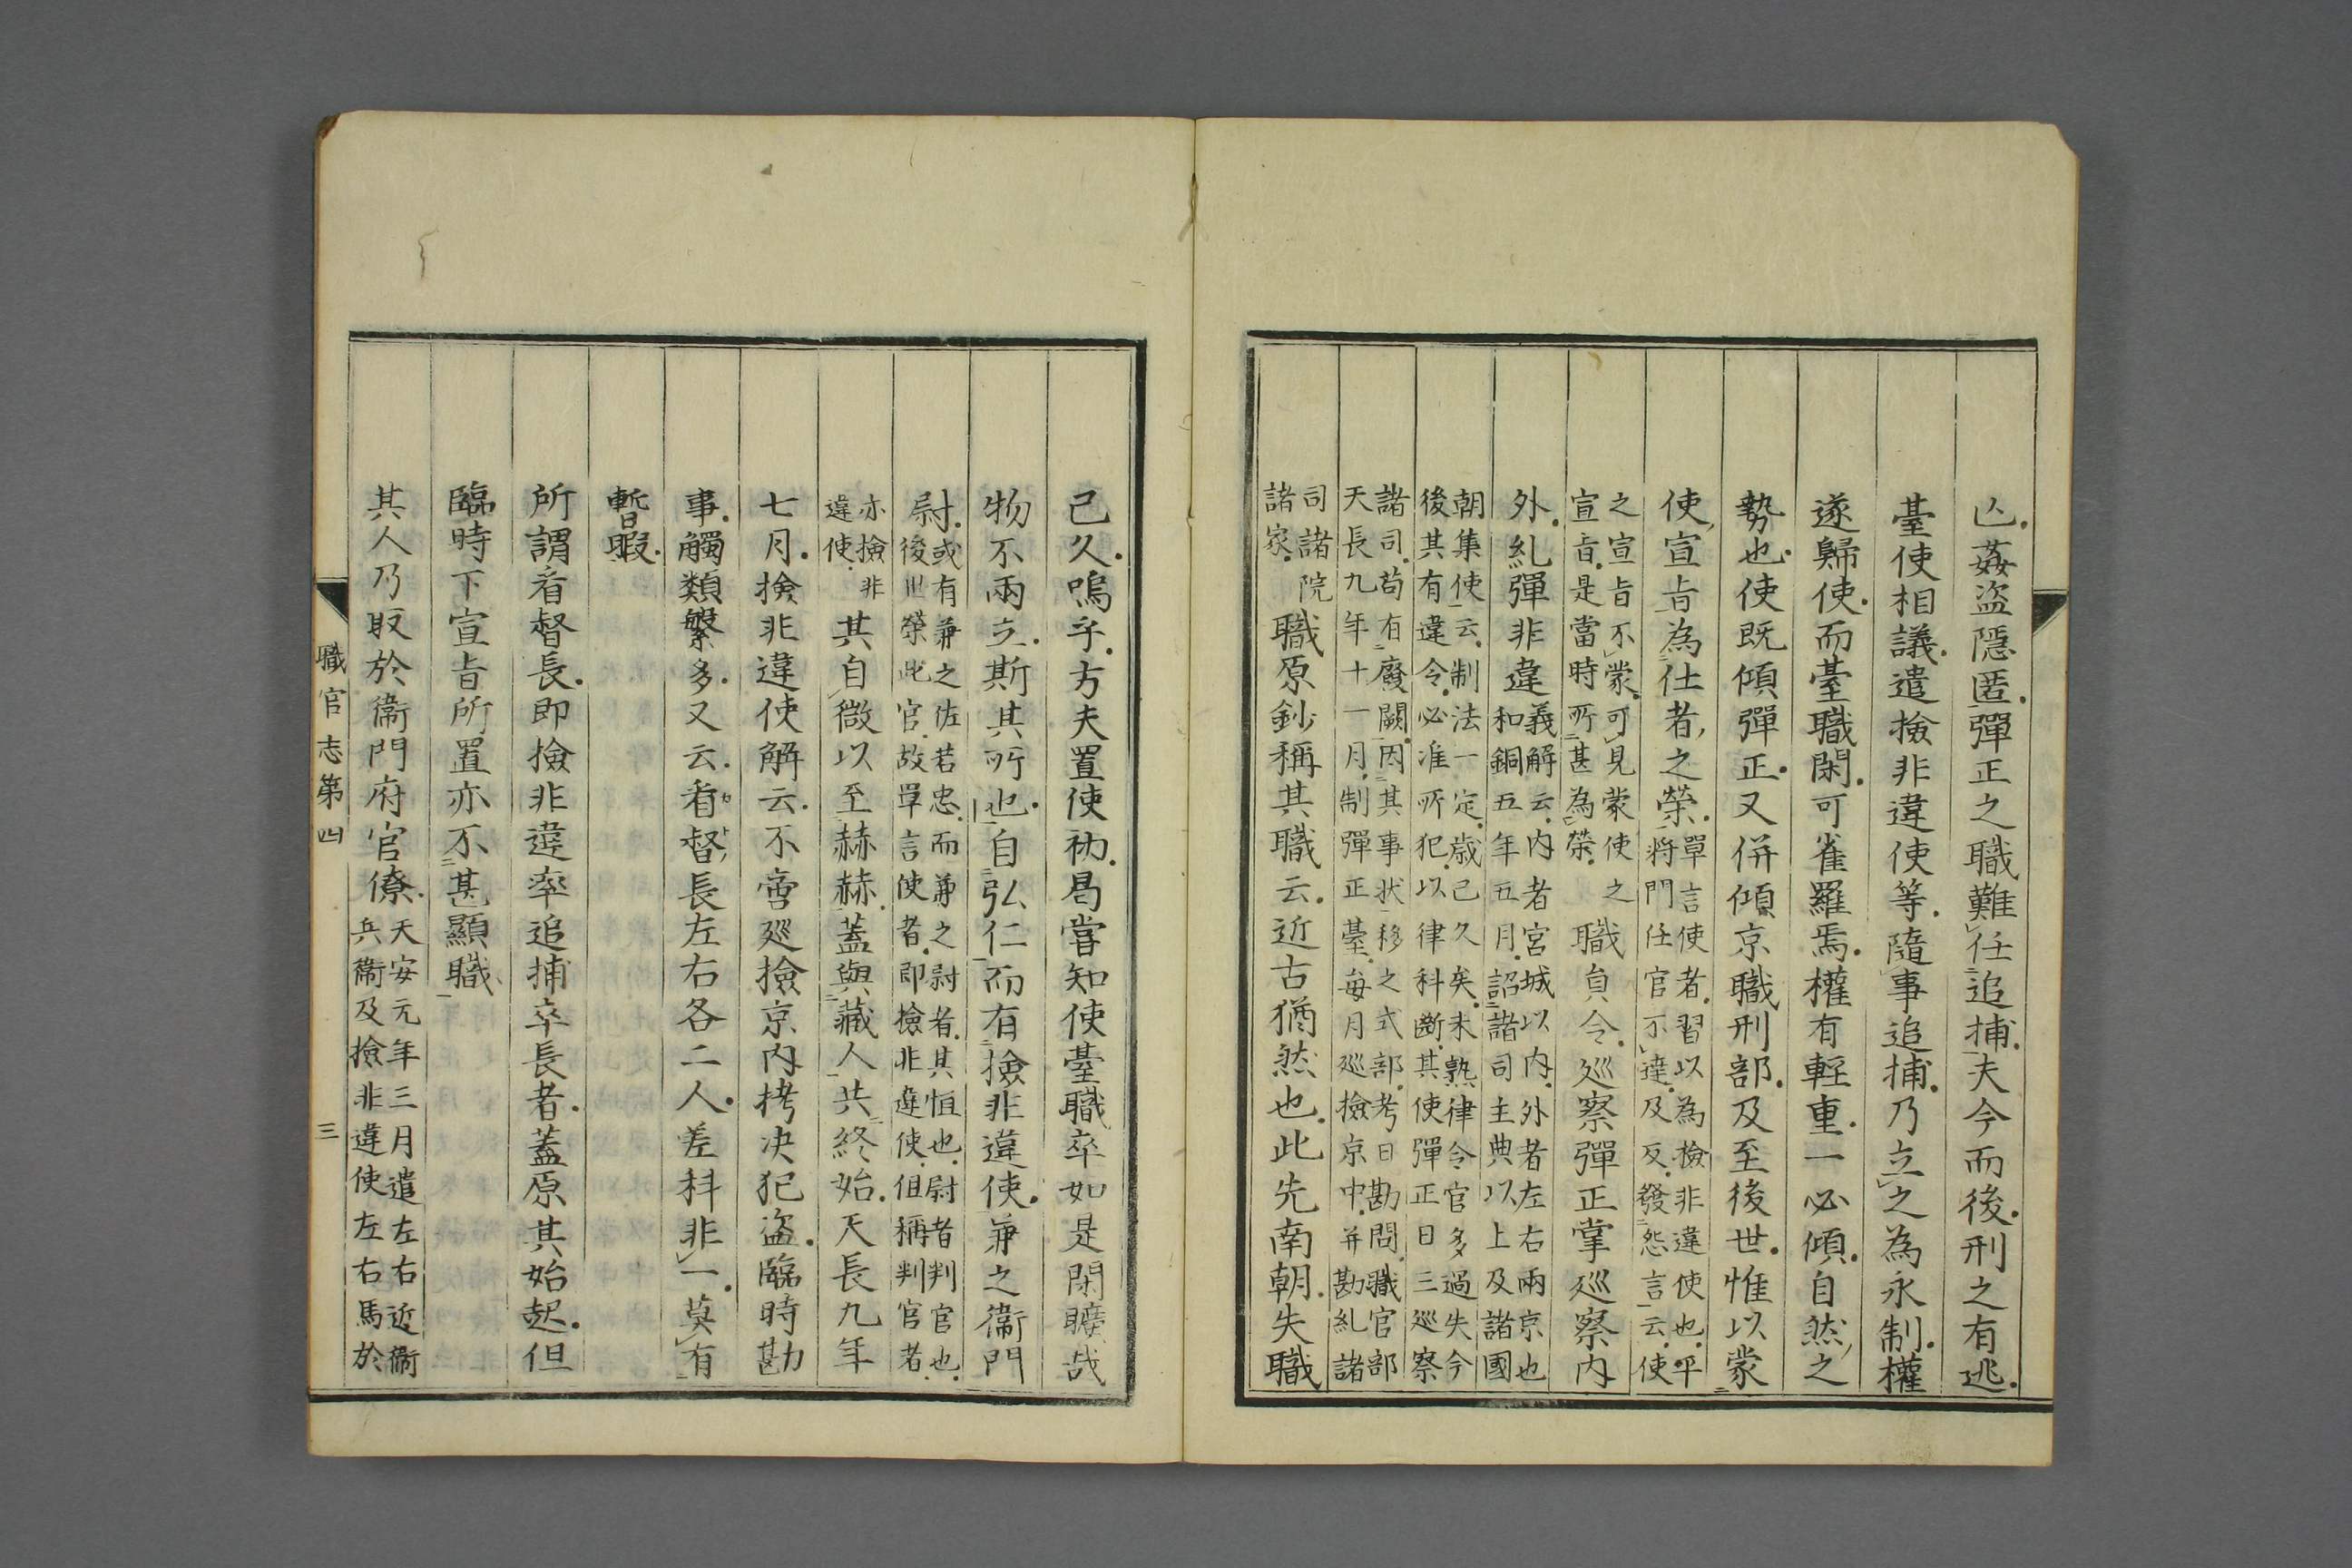 亾姦盗隱匿彈正之職難任追捕夫今而後刑之有逃
臺使相議遣撿非違使等隨事追捕乃立之為永制權
遂歸使而臺職閑可雀羅焉權有輕重一必傾自然之
勢也使既傾彈正又併傾京職刑部及至後世惟以蒙
使宣旨為仕者之榮
單言使者習以為檢非違使也平
將門任官不達及反發怨言云使
之宣旨不蒙可見蒙使之
宣旨是當時所甚為榮
職員令巡察彈正掌巡察内
外糺彈非違
義解云内者宮城以内外者左右兩京也
和銅五年五月詔諸司主典以上及諸國
朝集使云制法一定歲已久矣未熟律令官多過失今
後其有違令必准所犯以律科斷其使彈正日三巡察
諸司苟有廢闕因其事状移之式部考日勘問職官部
天長九年十一月制彈正臺每月巡撿京中并勘糺諸
司諸院
諸家
職原鈔稱其職云近古猶然也此先南朝失職
已久嗚乎方夫置使初曷嘗知使臺職卒如是閑曠哉
物不兩立斯其所也自弘仁而有撿非違使兼之衞門
尉
或有兼之佐若忠而兼之尉者其恒也尉者判官也
後世榮此官故單言使者即撿非違使但稱判官者
亦撿非
違使
其自微以至赫赫蓋與藏人共終始天長九年
七月撿非違使解云不啻廵撿京内拷决犯盗臨時勘
事觸類繁多又云看督長左右各二人差科非一莫有
暫暇
所謂看督長即撿非違率追捕卒長者蓋原其始起但
臨時下宣旨所置亦不甚顯職
其人乃取於衞門府官僚
天安元年三月遣左右近衞
兵衞及撿非違使左右馬於
職官志第四
三